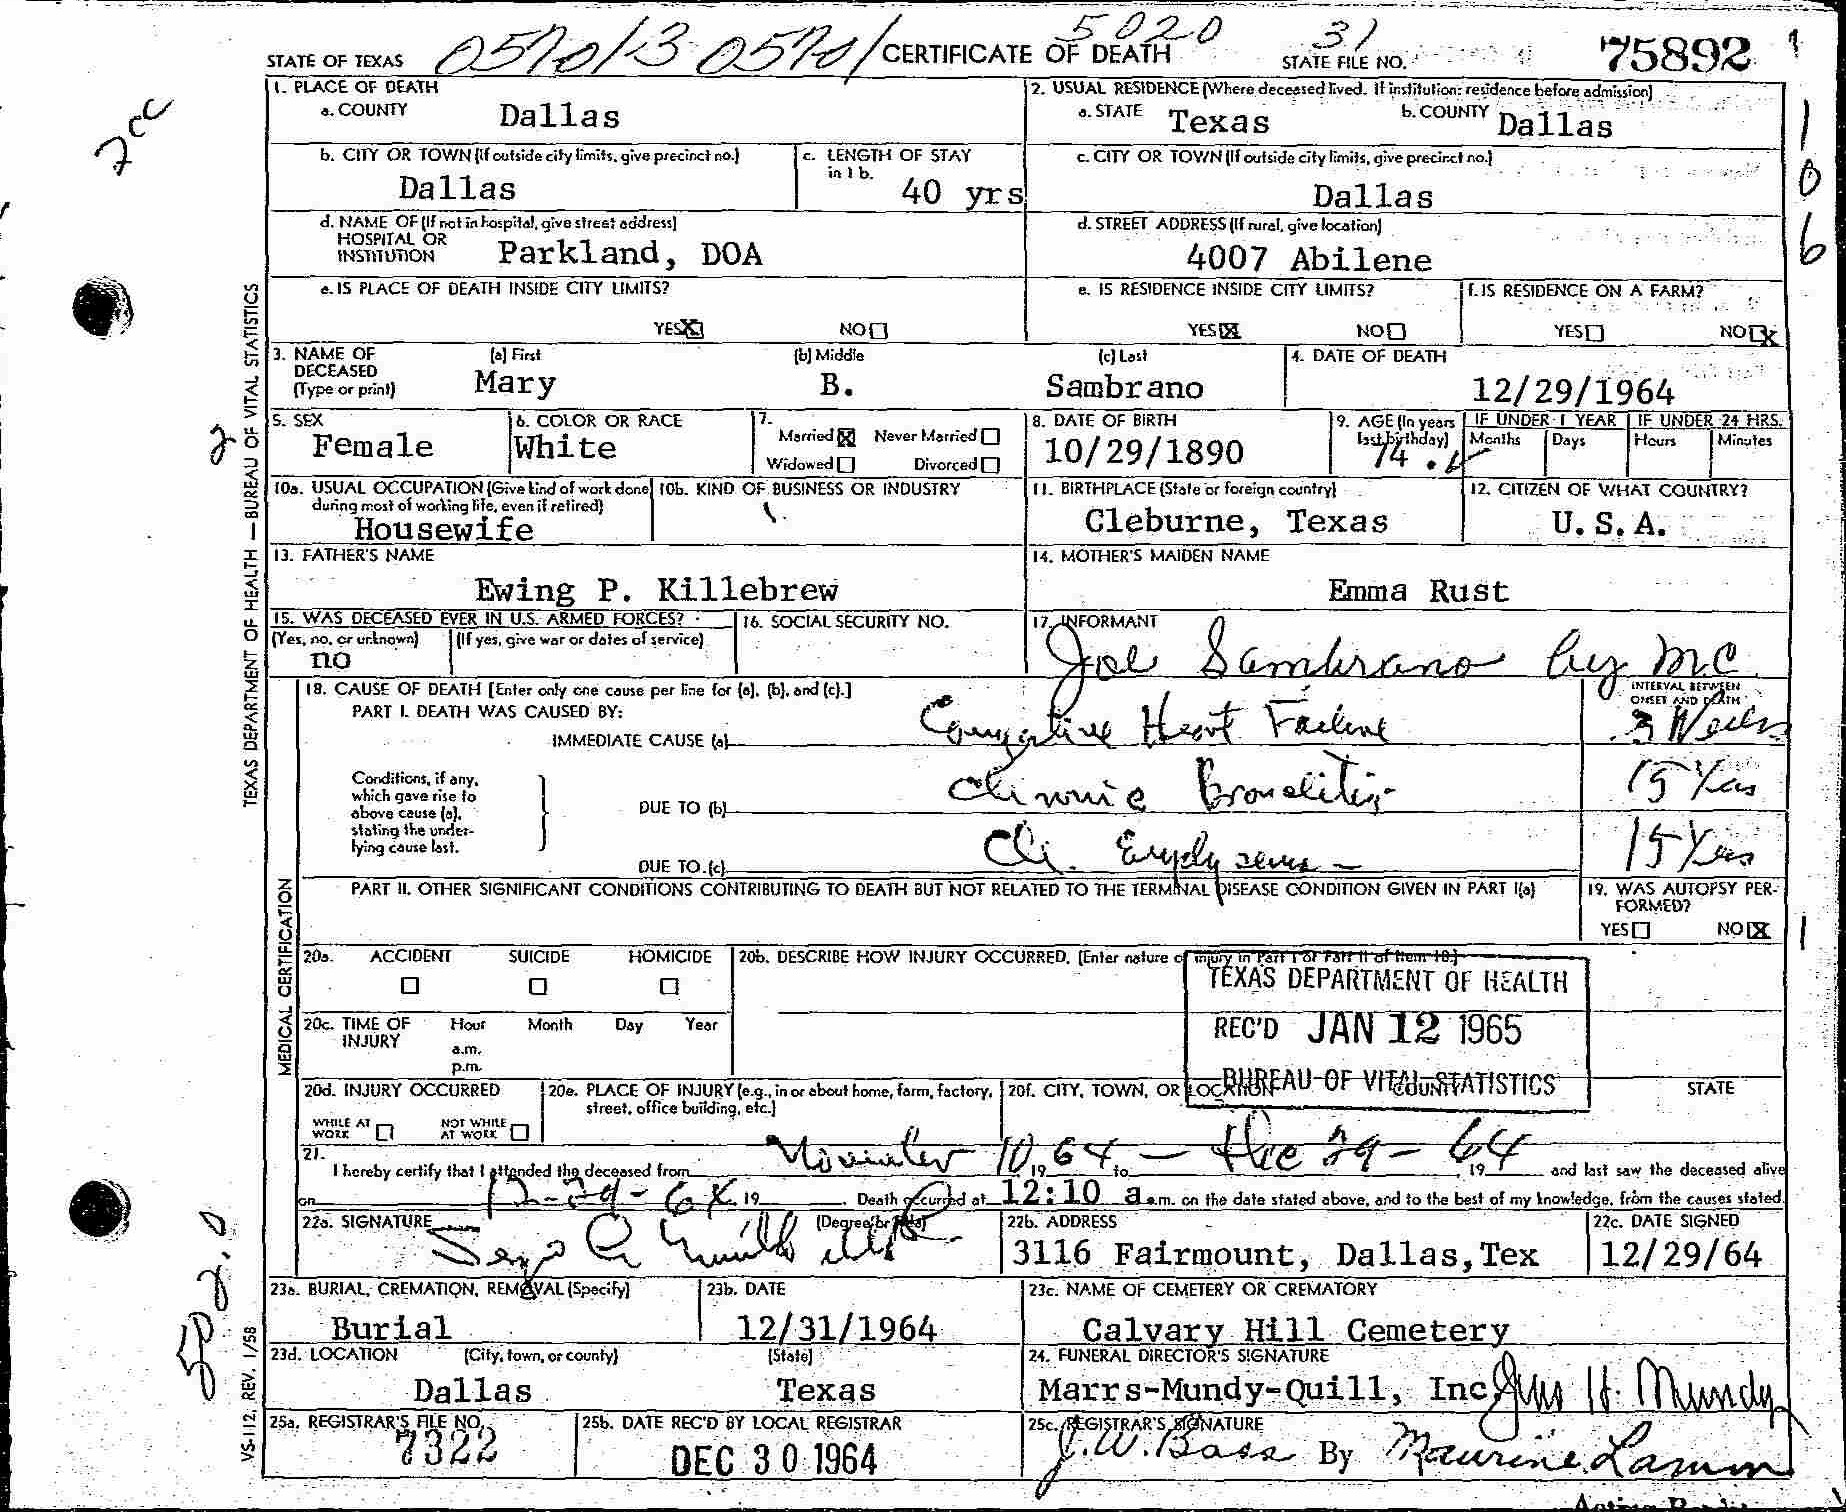 5020
STATE OF TEXAS 0570/3 0570/ CERTIFICATE OF DEATH 31 STATE FILE NO. 75892
1. PLACE OF DEATH
a. COUNTY Dallas
2. USUAL RESIDENCE (Where deceased lived. If institution: residence before admission)
a. STATE Texas b. COUNTY Dallas
2cc
b. CITY OR TOWN (If outside city limits, give precinct no.)
Dallas
c. LENGTH OF STAY in 1 b.
40 yrs
c. CITY OR TOWN (If outside city limits, give precinct no.)
Dallas
106
d. NAME OF (If not in hospital, give street address)
HOSPITAL OR
INSTITUTION Parkland, DOA
d. STREET ADDRESS (If rural, give location)
4007 Abilene
e. IS PLACE OF DEATH INSIDE CITY LIMITS?
YES X NO
e. IS RESIDENCE INSIDE CITY LIMITS?
YES X NO
f. IS RESIDENCE ON A FARM?
YES NO X
3. NAME OF
DECEASED
(Type or print)
(a) First (b) Middle (c) Last
Mary B. Sambrano
4. DATE OF DEATH
12/29/1964
5. SEX
Female
6. COLOR OR RACE
White
7.
Married X Never Married
Widowed Divorced
8. DATE OF BIRTH
10/29/1890
9. AGE (In years last birthday)
74
IF UNDER 1 YEAR
Months Days
IF UNDER 24 HRS.
Hours Minutes
2
10a. USUAL OCCUPATION (Give kind of work done
during most of working life, even if retired)
Housewife
10b. KIND OF BUSINESS OR INDUSTRY
11. BIRTHPLACE (State or foreign country)
Cleburne, Texas
12. CITIZEN OF WHAT COUNTRY?
U. S. A.
13. FATHER'S NAME
Ewing P. Killebrew
14. MOTHER'S MAIDEN NAME
Emma Rust
15. WAS DECEASED EVER IN U.S. ARMED FORCES?
(Yes, no, or unknown) (If yes, give war or dates of service)
no
16. SOCIAL SECURITY NO.
17. INFORMANT
Joe Sambrano by M.C.
TEXAS DEPARTMENT OF HEALTH — BUREAU OF VITAL STATISTICS
18. CAUSE OF DEATH [Enter only one cause per line for (a), (b), and (c).]
PART I. DEATH WAS CAUSED BY:
INTERVAL BETWEEN
ONSET AND DEATH
IMMEDIATE CAUSE (a) Congestive Heart Failure 3 Weeks
Conditions, if any,
which gave rise to
above cause (a),
stating the under-
lying cause last.
DUE TO (b) Chronic Bronchitis 15 Yrs
DUE TO (c) Ch. Emphysema 15 Yrs
PART II. OTHER SIGNIFICANT CONDITIONS CONTRIBUTING TO DEATH BUT NOT RELATED TO THE TERMINAL DISEASE CONDITION GIVEN IN PART I(a)
19. WAS AUTOPSY PER-
FORMED?
YES NO X
1
MEDICAL CERTIFICATION
20a. ACCIDENT SUICIDE HOMICIDE
20b. DESCRIBE HOW INJURY OCCURRED. (Enter nature of injury in Part I or Part II of Item 18.)
TEXAS DEPARTMENT OF HEALTH
REC'D JAN 12 1965
BUREAU OF VITAL STATISTICS
20c. TIME OF
INJURY
Hour Month Day Year
a.m.
p.m.
20d. INJURY OCCURRED
WHILE AT
WORK
NOT WHILE
AT WORK
20e. PLACE OF INJURY (e.g., in or about home, farm, factory,
street, office building, etc.)
20f. CITY, TOWN, OR LOCATION COUNTY STATE
21.
I hereby certify that I attended the deceased from November 10 19 64 — to Dec 29 - 64 19 and last saw the deceased alive
on 12-29-64 19 . Death occurred at 12:10 a.m. on the date stated above, and to the best of my knowledge, from the causes stated.
22a. SIGNATURE (Degree or title)
22b. ADDRESS
3116 Fairmount, Dallas, Tex
22c. DATE SIGNED
12/29/64
23a. BURIAL, CREMATION, REMOVAL (Specify)
Burial
23b. DATE
12/31/1964
23c. NAME OF CEMETERY OR CREMATORY
Calvary Hill Cemetery
23d. LOCATION (City, town, or county) (State)
Dallas Texas
24. FUNERAL DIRECTOR'S SIGNATURE
Marrs-Mundy-Quill, Inc. H. Mundy
25a. REGISTRAR'S FILE NO.
7322
25b. DATE REC'D BY LOCAL REGISTRAR
DEC 30 1964
25c. REGISTRAR'S SIGNATURE
J. W. Bass By Maurine
VS-112, REV. 1/58